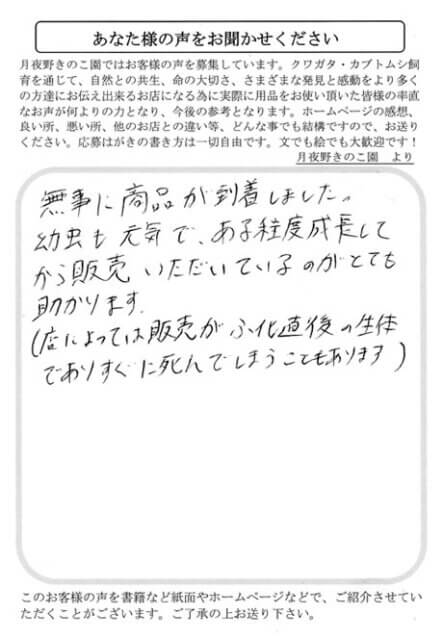 あなた様の声をお聞かせください
月夜野きのこ園ではお客様の声を募集しています。クワガタ・カブトムシ飼
育を通じて、自然との共生、命の大切さ、さまざまな発見と感動をより多く
の方達にお伝え出来るお店になる為に実際に用品をお使い頂いた皆様の率直
なお声が何よりの力となり、今後の参考となります。ホームページの感想、
良い所、悪い所、他のお店との違い等、どんな事でも結構ですので、お送り
ください。応募はがきの書き方は一切自由です。文でも絵でも大歓迎です！
月夜野きのこ園 より
無事に商品が到着しました。
幼虫も元気で、ある程度成長して
から販売いただいているのがとても
助かります。
(店によっては販売がふ化直後の生体
でありすぐに死んでしまうこともあります)
このお客様の声を書籍など紙面やホームページなどで、ご紹介させてい
ただくことがございます。ご了承の上お送り下さい。